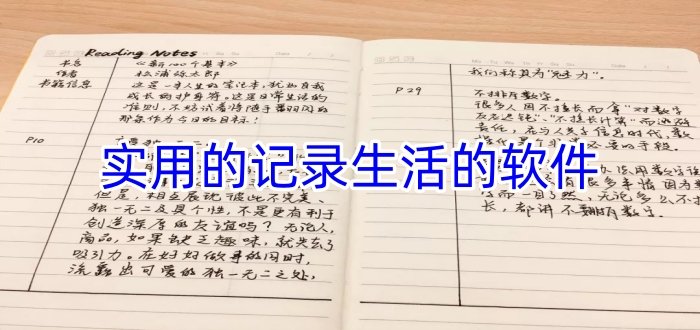 Reading Notes
书名
《新100个基本》
作者
松浦弥太郎
书籍信息
这是一本人生的笔记本，犹如自我
成长的护身符。这是日常生活的
准则，不妨试着将随手翻到的
那条作为今日的目标！
P10
实用的记录生活的软件
但是，相互展现彼此不完美、
独一无二及具个性，不是更有利于
创造深厚的友谊吗？无论人、
商品，如果缺乏趣味，就失去了
吸引力。在好好做事的同时，
流露出可爱的独一无二之处，
我们称其为“魅力”。
P29
不排斥数字。
很多人因不擅长而有“对数字
反应迟钝”、“不擅长计算”而逃避
责任，
数字
一目了然，无论多么不擅
长，都讲不要排斥数字。